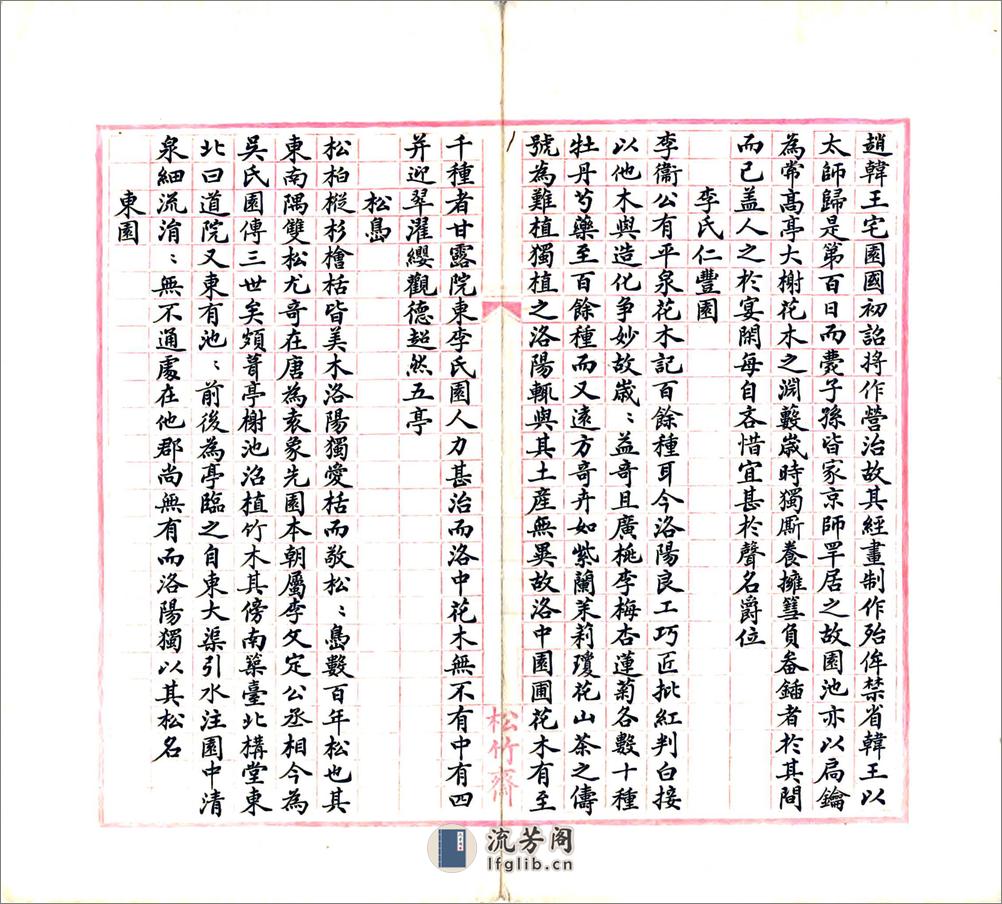 趙韓王宅園國初詔將作營治故其經畫制作殆侔禁省韓王以
太師歸是第百日而薨子孫皆家京師罕居之故園池亦以扃鑰
為常高亭大榭花木之淵藪歲時獨廝養擁篲負畚鍤者於其間
而已盖人之於宴閑每自吝惜宜甚於聲名爵位
李氏仁豐園
李衛公有平泉花木記百餘種耳今洛陽良工巧匠批紅判白接
以他木與造化争妙故歲〻益奇且廣桃李梅杏蓮菊各數十種
牡丹芍藥至百餘種而又遠方奇卉如紫蘭茉莉瓊花山茶之儔
號為難植獨植之洛陽輒與其土產無異故洛中園圃花木有至
千種者甘露院東李氏園人力甚治而洛中花木無不有中有四
并迎翠濯纓觀德超然五亭
松島
松柏樅杉檜栝皆美木洛陽獨愛栝而敬松〻島數百年松也其
東南隅雙松尤奇在唐為袁象先園本朝屬李文定公丞相今為
吳氏園傳三世矣頗葺亭榭池沼植竹木其傍南築臺北構堂東
北曰道院又東有池〻前後為亭臨之自東大渠引水注園中清
泉細流涓〻無不通處在他郡尚無有而洛陽獨以其松名
東園
松竹齋
流芳阁
lfglib.cn